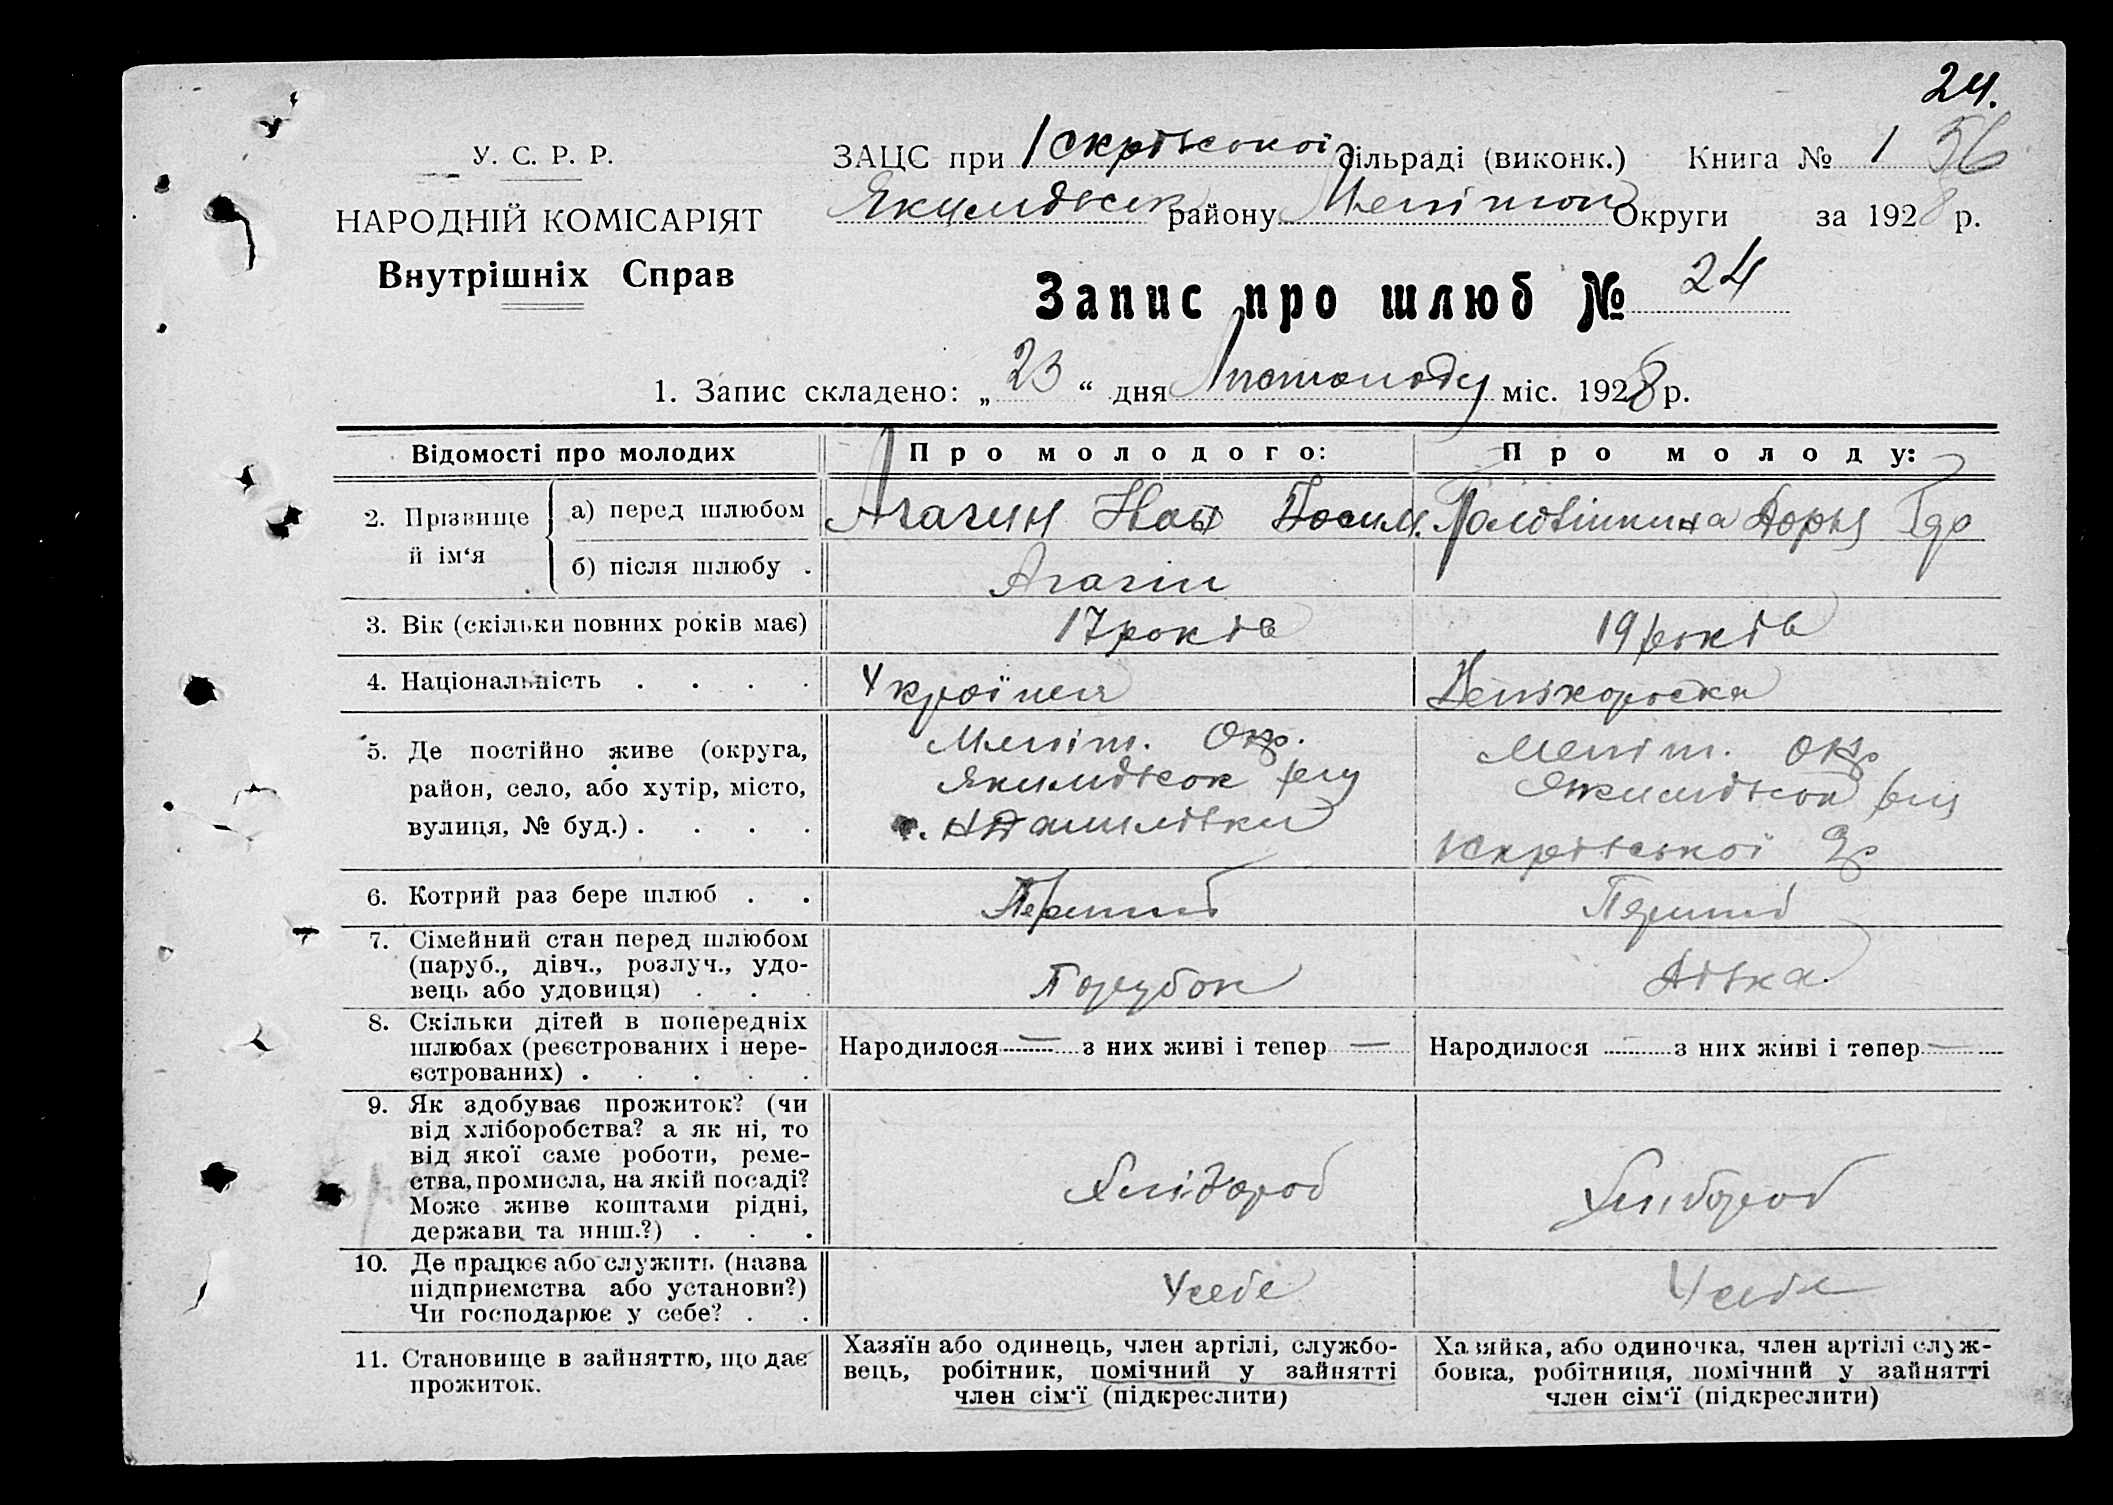 24.
У. С. Р. Р.
НАРОДНІЙ КОМІСАРІЯТ
Внутрішніх Справ
ЗАЦС при Іскрівської сільраді (виконк.) Книга № 1 56
Якимівськ району Мелітоп Округи за 1928 р.
Запис про шлюб № 24
1. Запис складено: „ 23 “ дня Листопаду міс. 1928 р.
Відомості про молодих
Про молодого:
Про молоду:
2. Прізвище й ім‘я
а) перед шлюбом
Агагин
Дарья
б) після шлюбу .
Агагін
3. Вік (скільки повних років має)
17 років
19 років
4. Національність . . . .
Українец
Велікороска
5. Де постійно живе (округа,
район, село, або хутір, місто,
вулиця, № буд.) . . . .
Меліт. Окр.
Якимівськ
Меліт. Окр
Якимівськ
Іскрівської
6. Котрий раз бере шлюб . .
Перший
Перший
7. Сімейний стан перед шлюбом
(паруб., дівч., розлуч., удо-
вець або удовиця) . . .
Парубок
Дівка.
8. Скільки дітей в попередніх
шлюбах (реєстрованих і нере-
єстрованих) . . . . .
Народилося — з них живі і тепер —
Народилося — з них живі і тепер —
9. Як здобуває прожиток? (чи
від хліборобства? а як ні, то
від якої саме роботи, реме-
ства, промисла, на якій посаді?
Може живе коштами рідні,
держави та инш.?) . . .
Хлібороб
Хлібороб
10. Де працює або служить (назва
підприємства або установи?)
Чи господарює у себе? . .
Усебе
Усебе
11. Становище в зайняттю, що дає
прожиток.
Хазяїн або одинець, член артілі, службо-
вець, робітник, помічний у зайнятті
член сім‘ї (підкреслити)
Хазяйка, або одиночка, член артілі служ-
бовка, робітниця, помічний у зайнятті
член сім‘ї (підкреслити)